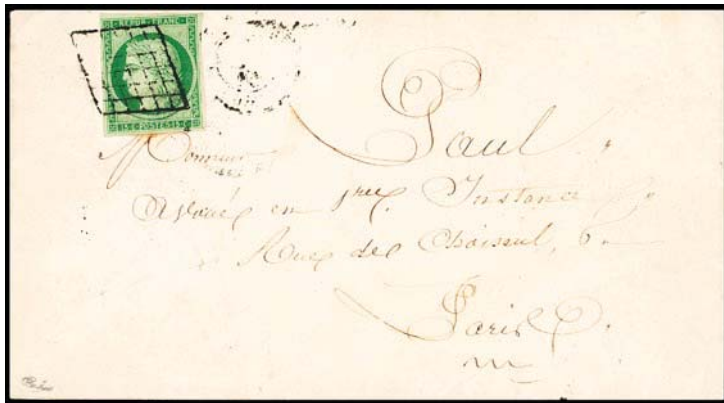 REPUB. FRANC.
15 C. POSTES 15 C.
Monsieur
Paul
Avoué en 1re Instance
Rue de Choiseul, 6
Paris